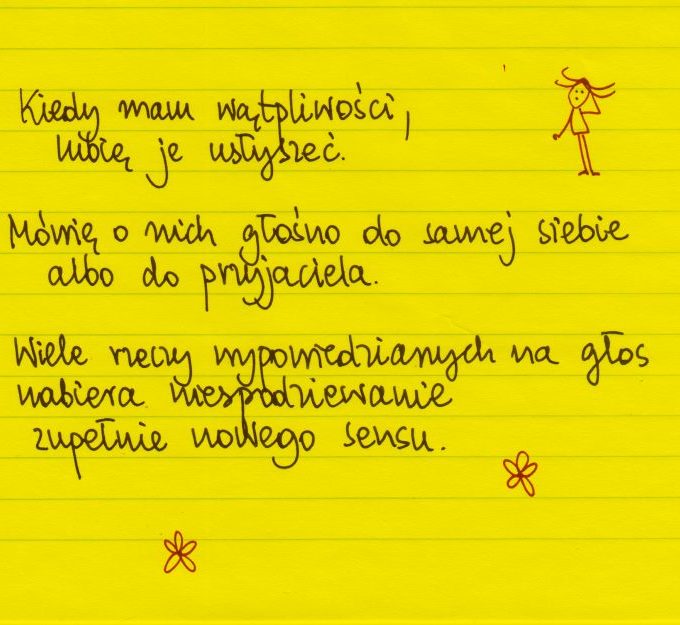 Kiedy mam wątpliwości,
lubię je usłyszeć.
Mówię o nich głośno do samej siebie
albo do przyjaciela.
Wiele rzeczy wypowiedzianych na głos
nabiera niespodziewanie
zupełnie nowego sensu.